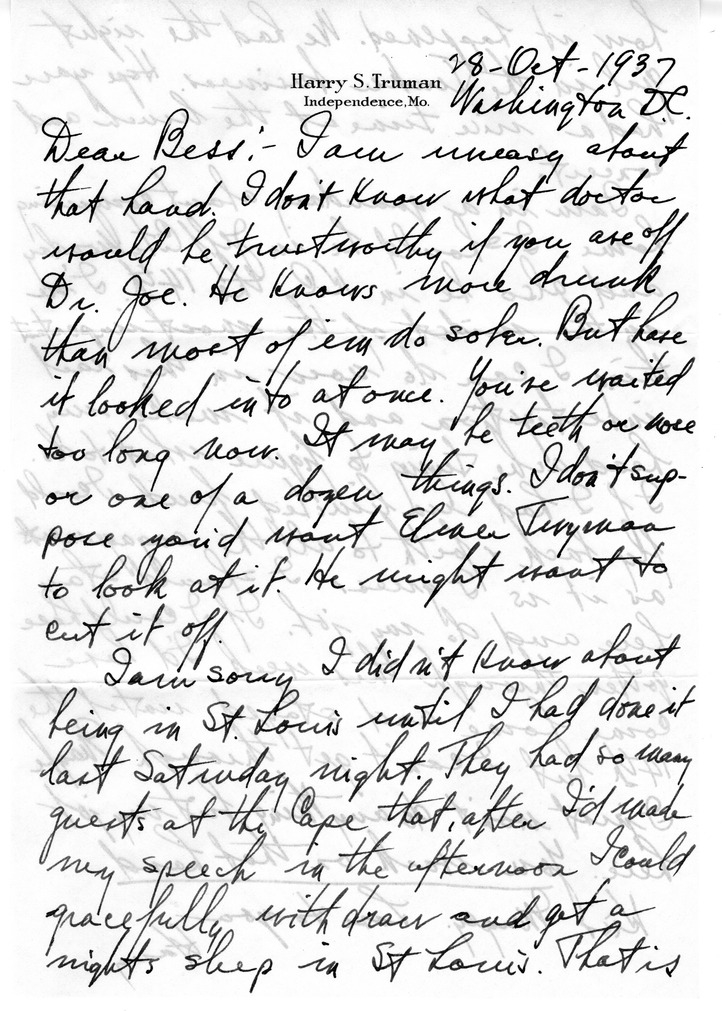 28-Oct-1937
Harry S. Truman
Independence, Mo.
Washington D.C.
Dear Bess:- I am uneasy about
that hand. I don't know what doctor
would be trustworthy if you are off
Dr. Joe. He knows more drunk
than most of 'em do sober. But have
it looked into at once. You've waited
too long now. It may be teeth or nose
or one of a dozen things. I don't sup-
pose you'd want Elmer Twyman
to look at it. He might want to
cut it off.
I am sorry I didn't know about
being in St. Louis until I had done it
last Saturday night. They had so many
guests at the Cape that, after I'd made
my speech in the afternoon I could
gracefully withdraw and get a
nights sleep in St Louis. That is